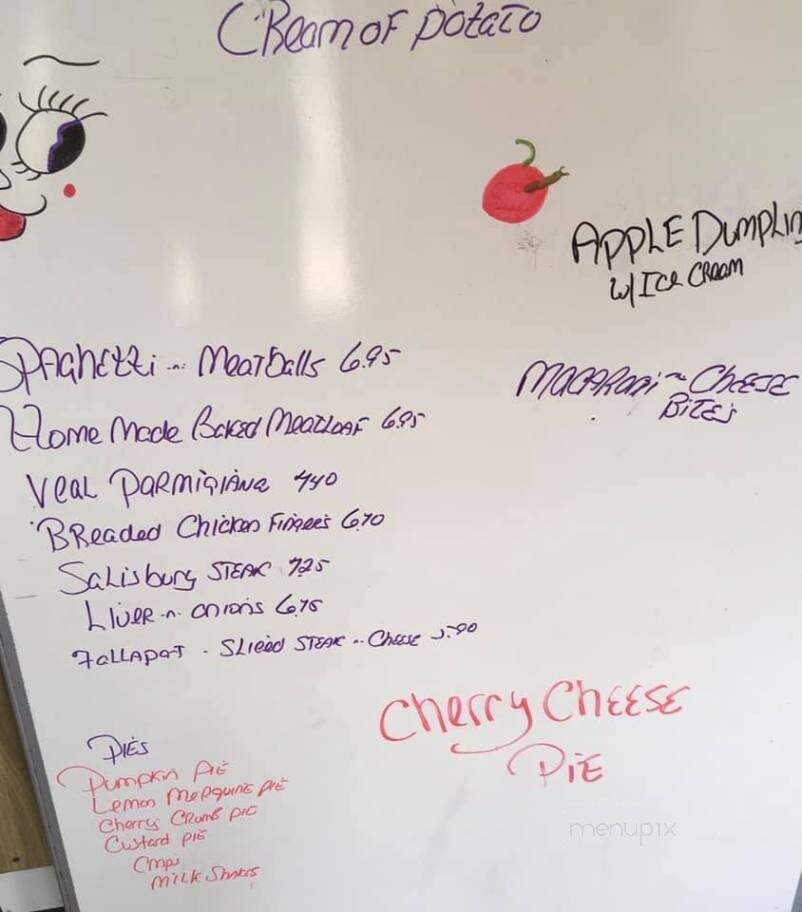 CReam OF Potato
APPLE Dumplin
w/ Ice CReam
SPAGhetti n MeatBalls 6.95
MACARONi n CHEESE
BiTES
Home Made BaKed MeatLoaF 6.95
Veal PARMiGiANa 7.40
BReaded Chicken Fingers 6.70
SaLisbury STEAK 7.25
LIVER n onions 6.75
SLiced STEAK n Cheese
Cherry CHEESE
PiE
PiES
Pumpkin PiE
Lemon MeRquine PiE
Cherry CRumb PiE
Custard PiE
MiLK Shakes
menupix